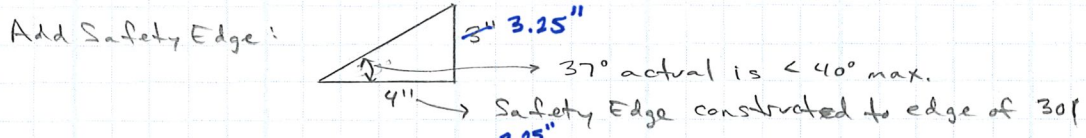 Add Safety Edge: 3" 3.25"
37° actual is < 40° max.
4" Safety Edge constructed to edge of 301
3.25"